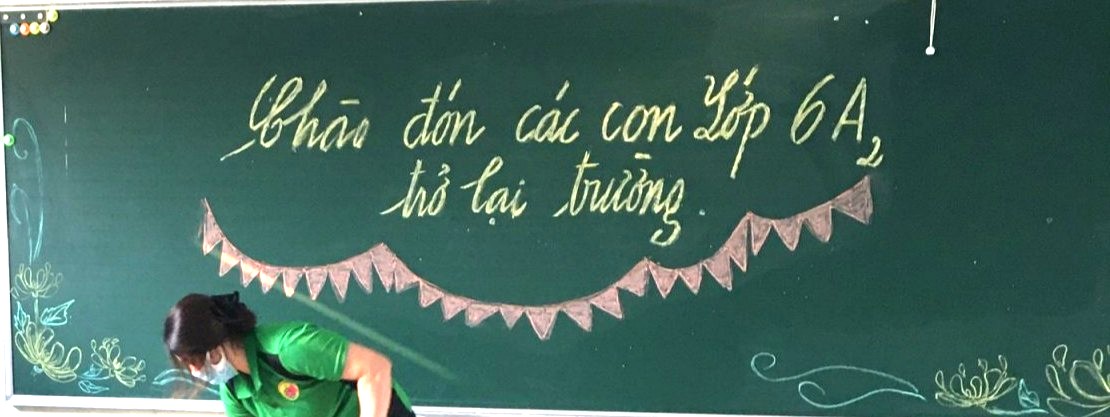 Chào đón các con Lớp 6A2
trở lại trường.